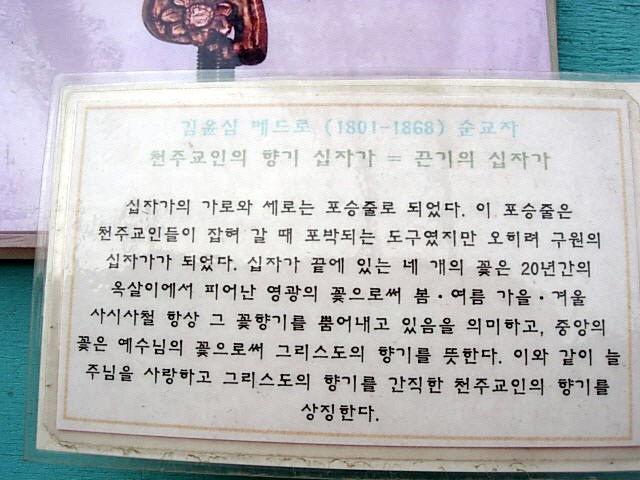 김윤심 베드로 (1801-1868) 순교자
천주교인의 향기 십자가 = 끈기의 십자가
십자가의 가로와 세로는 포승줄로 되었다. 이 포승줄은
천주교인들이 잡혀 갈 때 포박되는 도구였지만 오히려 구원의
십자가가 되었다. 십자가 끝에 있는 네 개의 꽃은 20년간의
옥살이에서 피어난 영광의 꽃으로써 봄·여름 가을·겨울
사시사철 항상 그 꽃향기를 뿜어내고 있음을 의미하고, 중앙의
꽃은 예수님의 꽃으로써 그리스도의 향기를 뜻한다. 이와 같이 늘
주님을 사랑하고 그리스도의 향기를 간직한 천주교인의 향기를
상징한다.